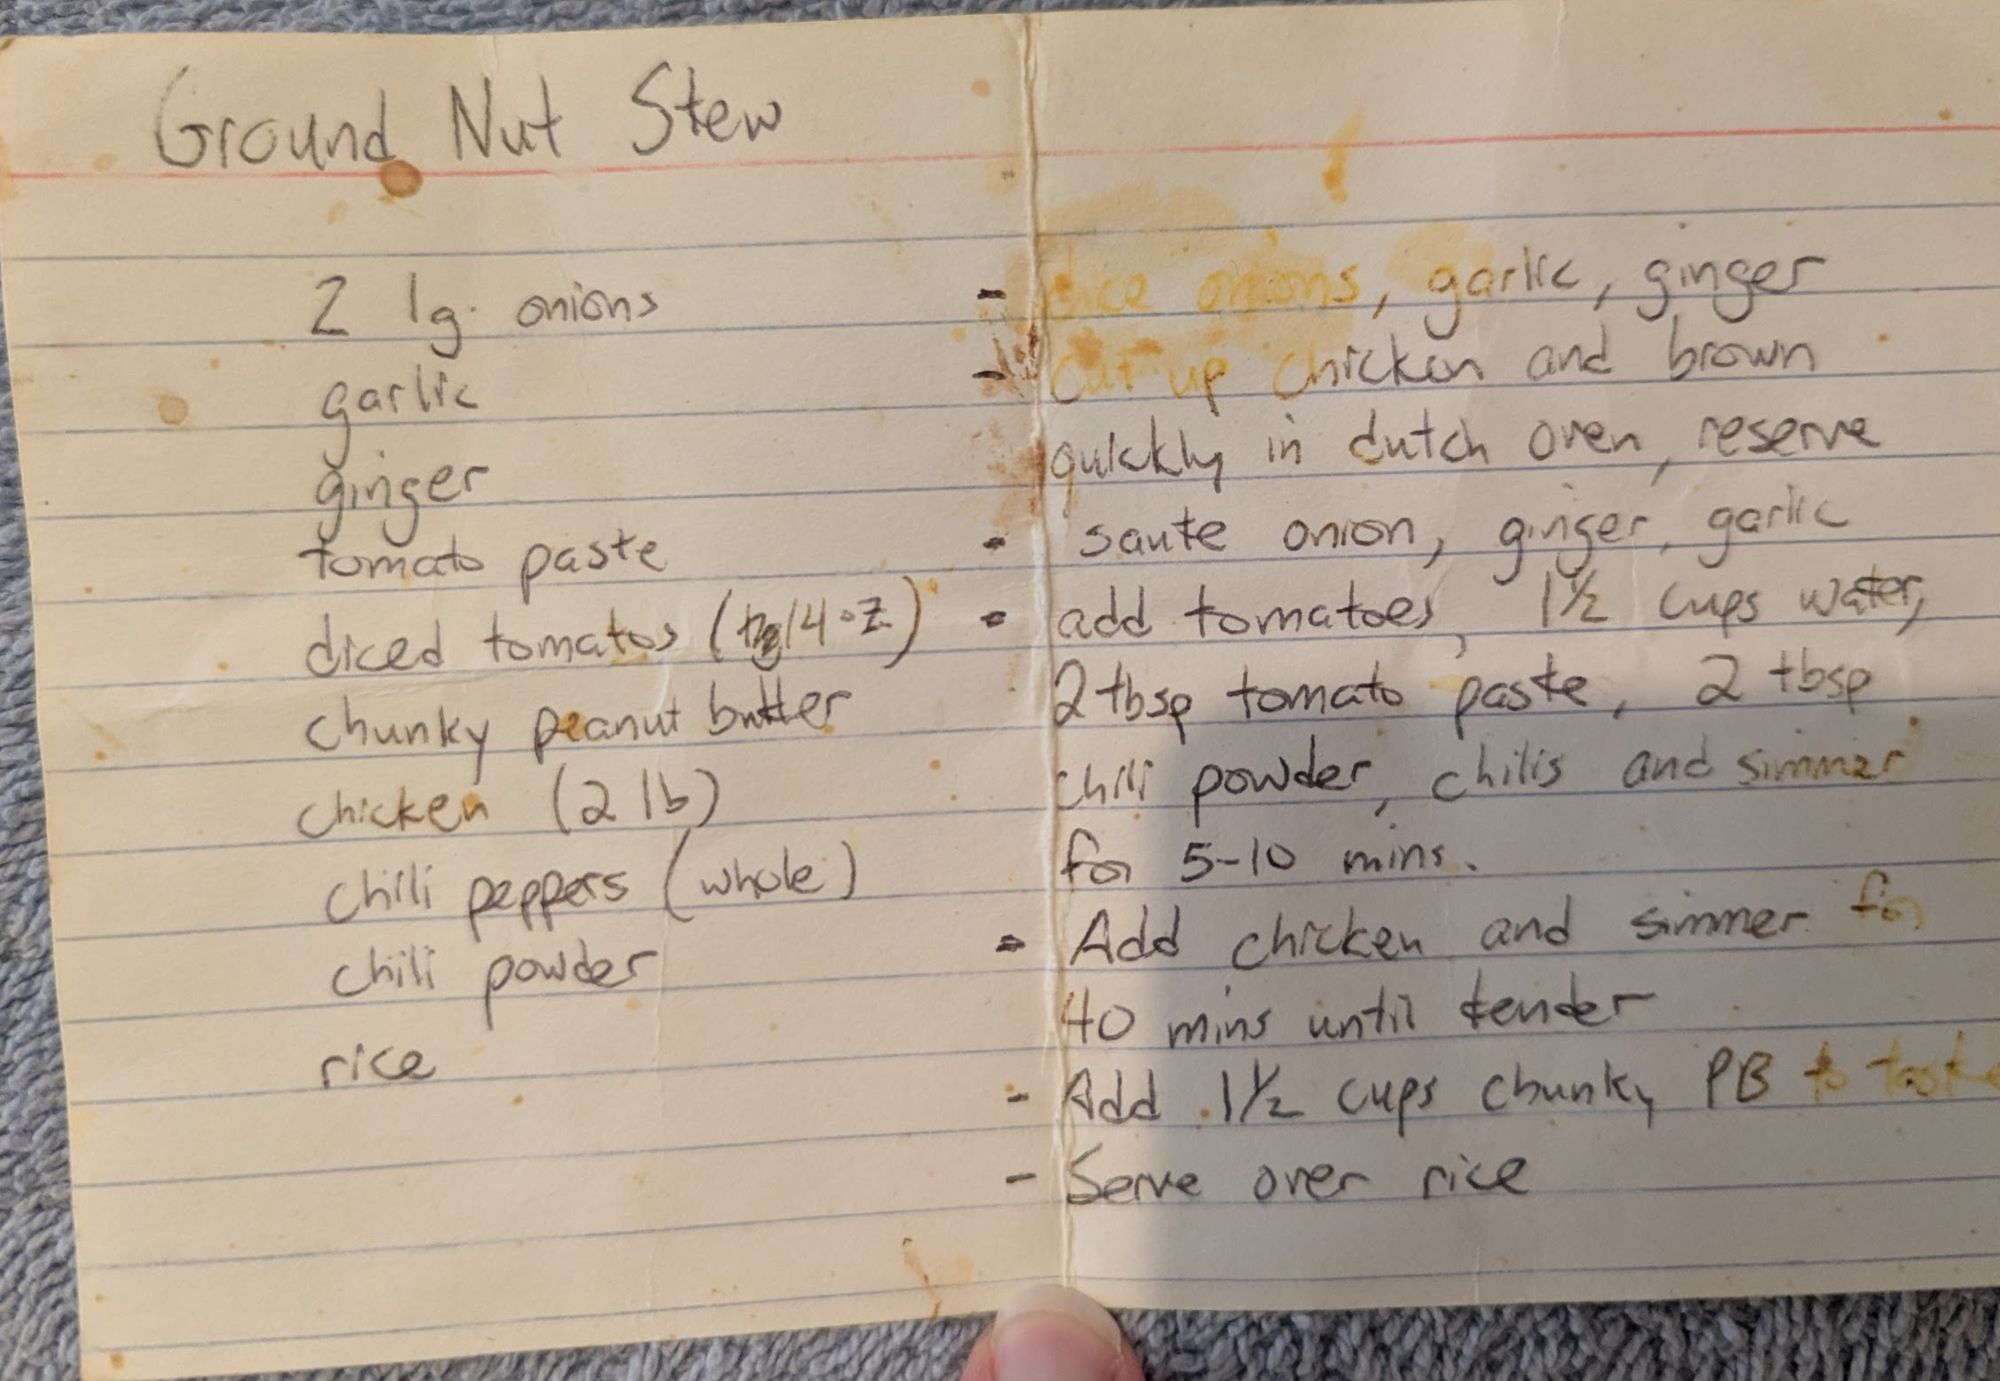 Ground Nut Stew
2 lg. onions
garlic
ginger
tomato paste
diced tomatos (14 oz)
chunky peanut butter
chicken (2 lb)
chili peppers (whole)
chili powder
rice
- dice onions, garlic, ginger
- cut up chicken and brown
quickly in dutch oven, reserve
- saute onion, ginger, garlic
- add tomatoes, 1½ cups water,
2 tbsp tomato paste, 2 tbsp
chili powder, chilis and simmer
for 5-10 mins.
- Add chicken and simmer for
40 mins until tender
- Add 1½ cups chunky PB to taste
- Serve over rice